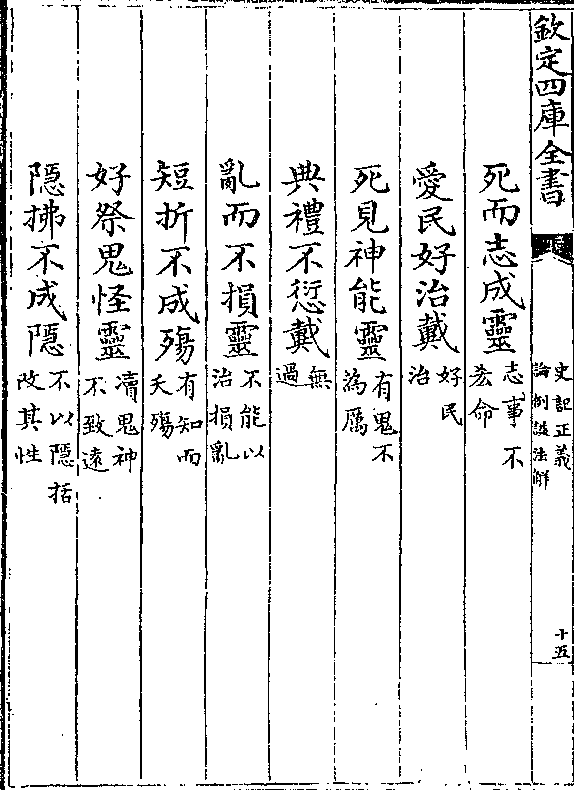 欽定四庫全書
史記正義
論例諡法解
十五
死而志成靈 志事不
命
愛民好治戴 好民
治
死見神能靈 有鬼不
為厲
典禮不愆戴 無
過
亂而不損靈 不能以
治損亂
短折不成殤 有知而
夭殤
好祭鬼怪靈 瀆鬼神
不致遠
隠拂不成隠 不以隠括
改其性